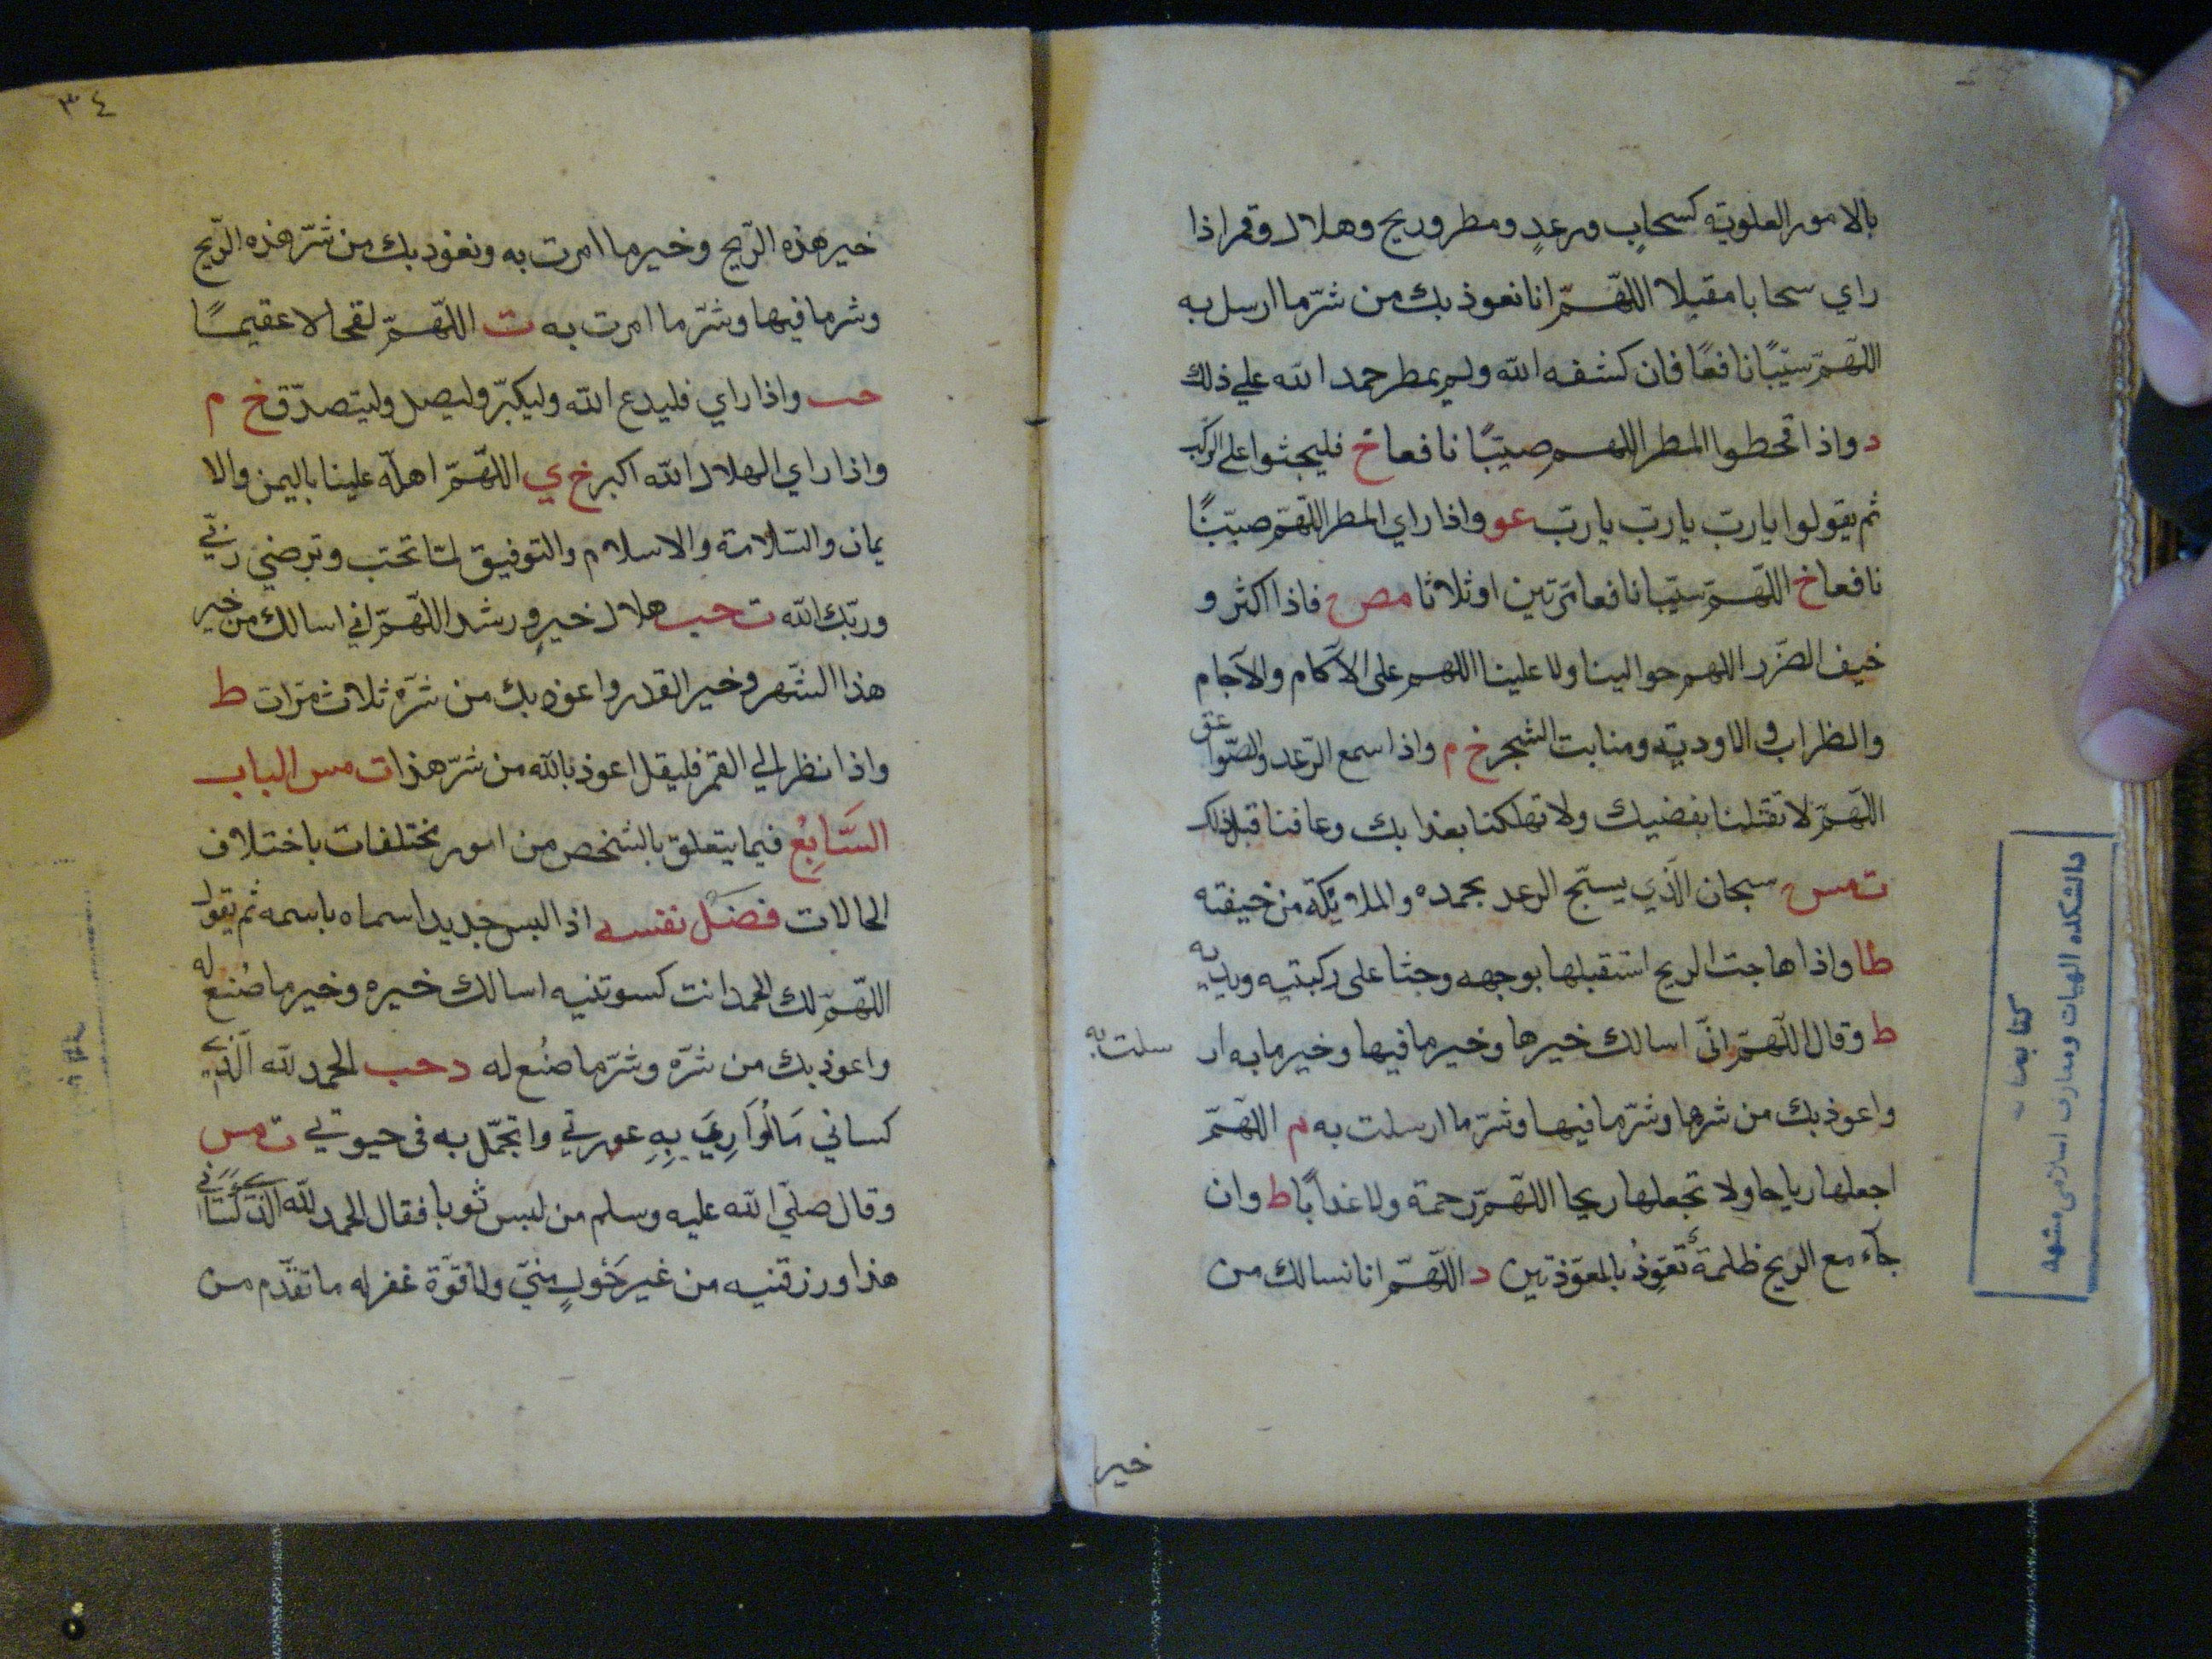 بالامور العلویة كسحابٍ ورعدٍ ومطر وریح وهلال وقمر اذا
راي سحابا مقبلا اللّهمّ انا نعوذ بك من شرّ ما ارسل به
اللّهمّ سیّبًا نافعًا فان كشفه الله ولم یمطر حمد الله علي ذلك
د واذا قحطوا المطر اللهم صیّبًا نافعا خ فلیجثوا علی الركب
ثم یقولوا یا ربّ یا ربّ یا ربّ عو واذا راي المطر اللّهمّ صیّبًا
نافعا خ اللّهمّ سیّبا نافعا مرّتین او ثلاثا مص فاذا اكثر و
خیف الضّرر اللهم حوالینا ولا علینا اللهم علی الآكام والآجام
والظراب والاودیة ومنابت الشجر خ م واذا سمع الرّعد والصّواعق
اللّهمّ لا تقتلنا بغضبك ولا تهلكنا بعذابك وعافنا قبل ذلك
ت مس سبحان الّذي یسبّح الرعد بحمده والملائكة من خیفته
طا واذا هاجت الریح استقبلها بوجهه وجثا علی ركبتیه ویدیه
ط وقال اللّهمّ انّی اسالك خیرها وخیر ما فیها وخیر ما به ار
سلت به
واعوذ بك من شرها وشرّ ما فیها وشرّ ما ارسلت به م اللّهمّ
اجعلها ریاحا ولا تجعلها ریحا اللّهمّ رحمة ولا عذابًا ط وان
جآء مع الریح ظلمة تعوّذ بالمعوّذتین د اللّهمّ انا نسالك من
خیر
دانشکده الهیات ومعارف اسلامی مشهد
٣٤
خیر هذه الرّیح وخیر ما امرت به ونعوذ بك من شرّ هذه الرّیح
وشر ما فیها وشرّ ما امرت به ت اللّهمّ لقحا لا عقیمًا
حب واذا راي فلیدع الله ولیكبّر ولیصل ولیتصدّق خ م
واذا راي الهلال الله اكبر خ ي اللّهمّ اهلّه علینا بالیمن والا
یمان والسّلامة والاسلام والتوفیق لما تحبّ وترضی ربّي
وربّك الله ت حب هلال خیرٍ ورشد اللّهمّ اني اسالك من خیر
هذا الشّهر وخیر القدر واعوذ بك من شرّه ثلاث مرّات ط
واذا نظر الي القمر فلیقل اعوذ بالله من شرّ هذا ت مس الباب
السَّابِعُ فیما یتعلق بالشخص من امور مختلفات باختلاف
الحالات فضل نفسه اذا لبس جدیدا سماه باسمه ثم یقول
اللّهمّ لك الحمد انت كسوتنیه اسالك خیره وخیر ما صُنع له
واعوذ بك من شرّه وشرّ ما صُنع له د حب الحمد لله الّذي
كساني مَا اُوَارِيَ بِهِ عورتي واتجمّل به فی حیوتي ت مس
وقال صلّی الله علیه وسلم من لبس ثوبا فقال الحمد لله الّذي كسانی
هذا ورزقنیه من غیر حَوْلٍ منّي ولا قوّة غفر له ما تقدّم من